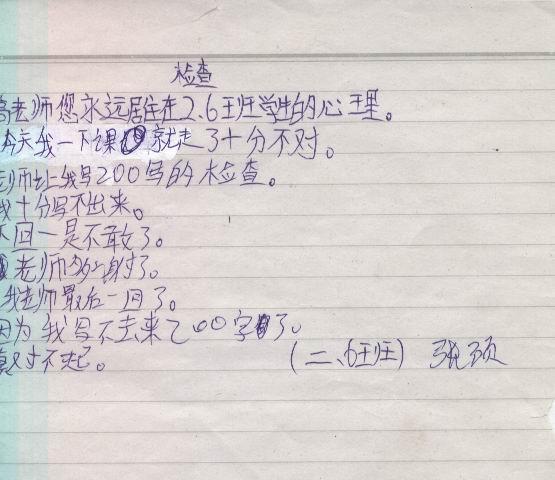 检查
高老师您永远居住在2.6班学生的心里。
今天我一下课就走了十分不对。
老师让我写200字的检查。
我十分写不出来。
下回一是不敢了。
老师多谢了。
我老师最后一回了。
因为我写不去来200字了。
真对不起。
(二、6班) 张